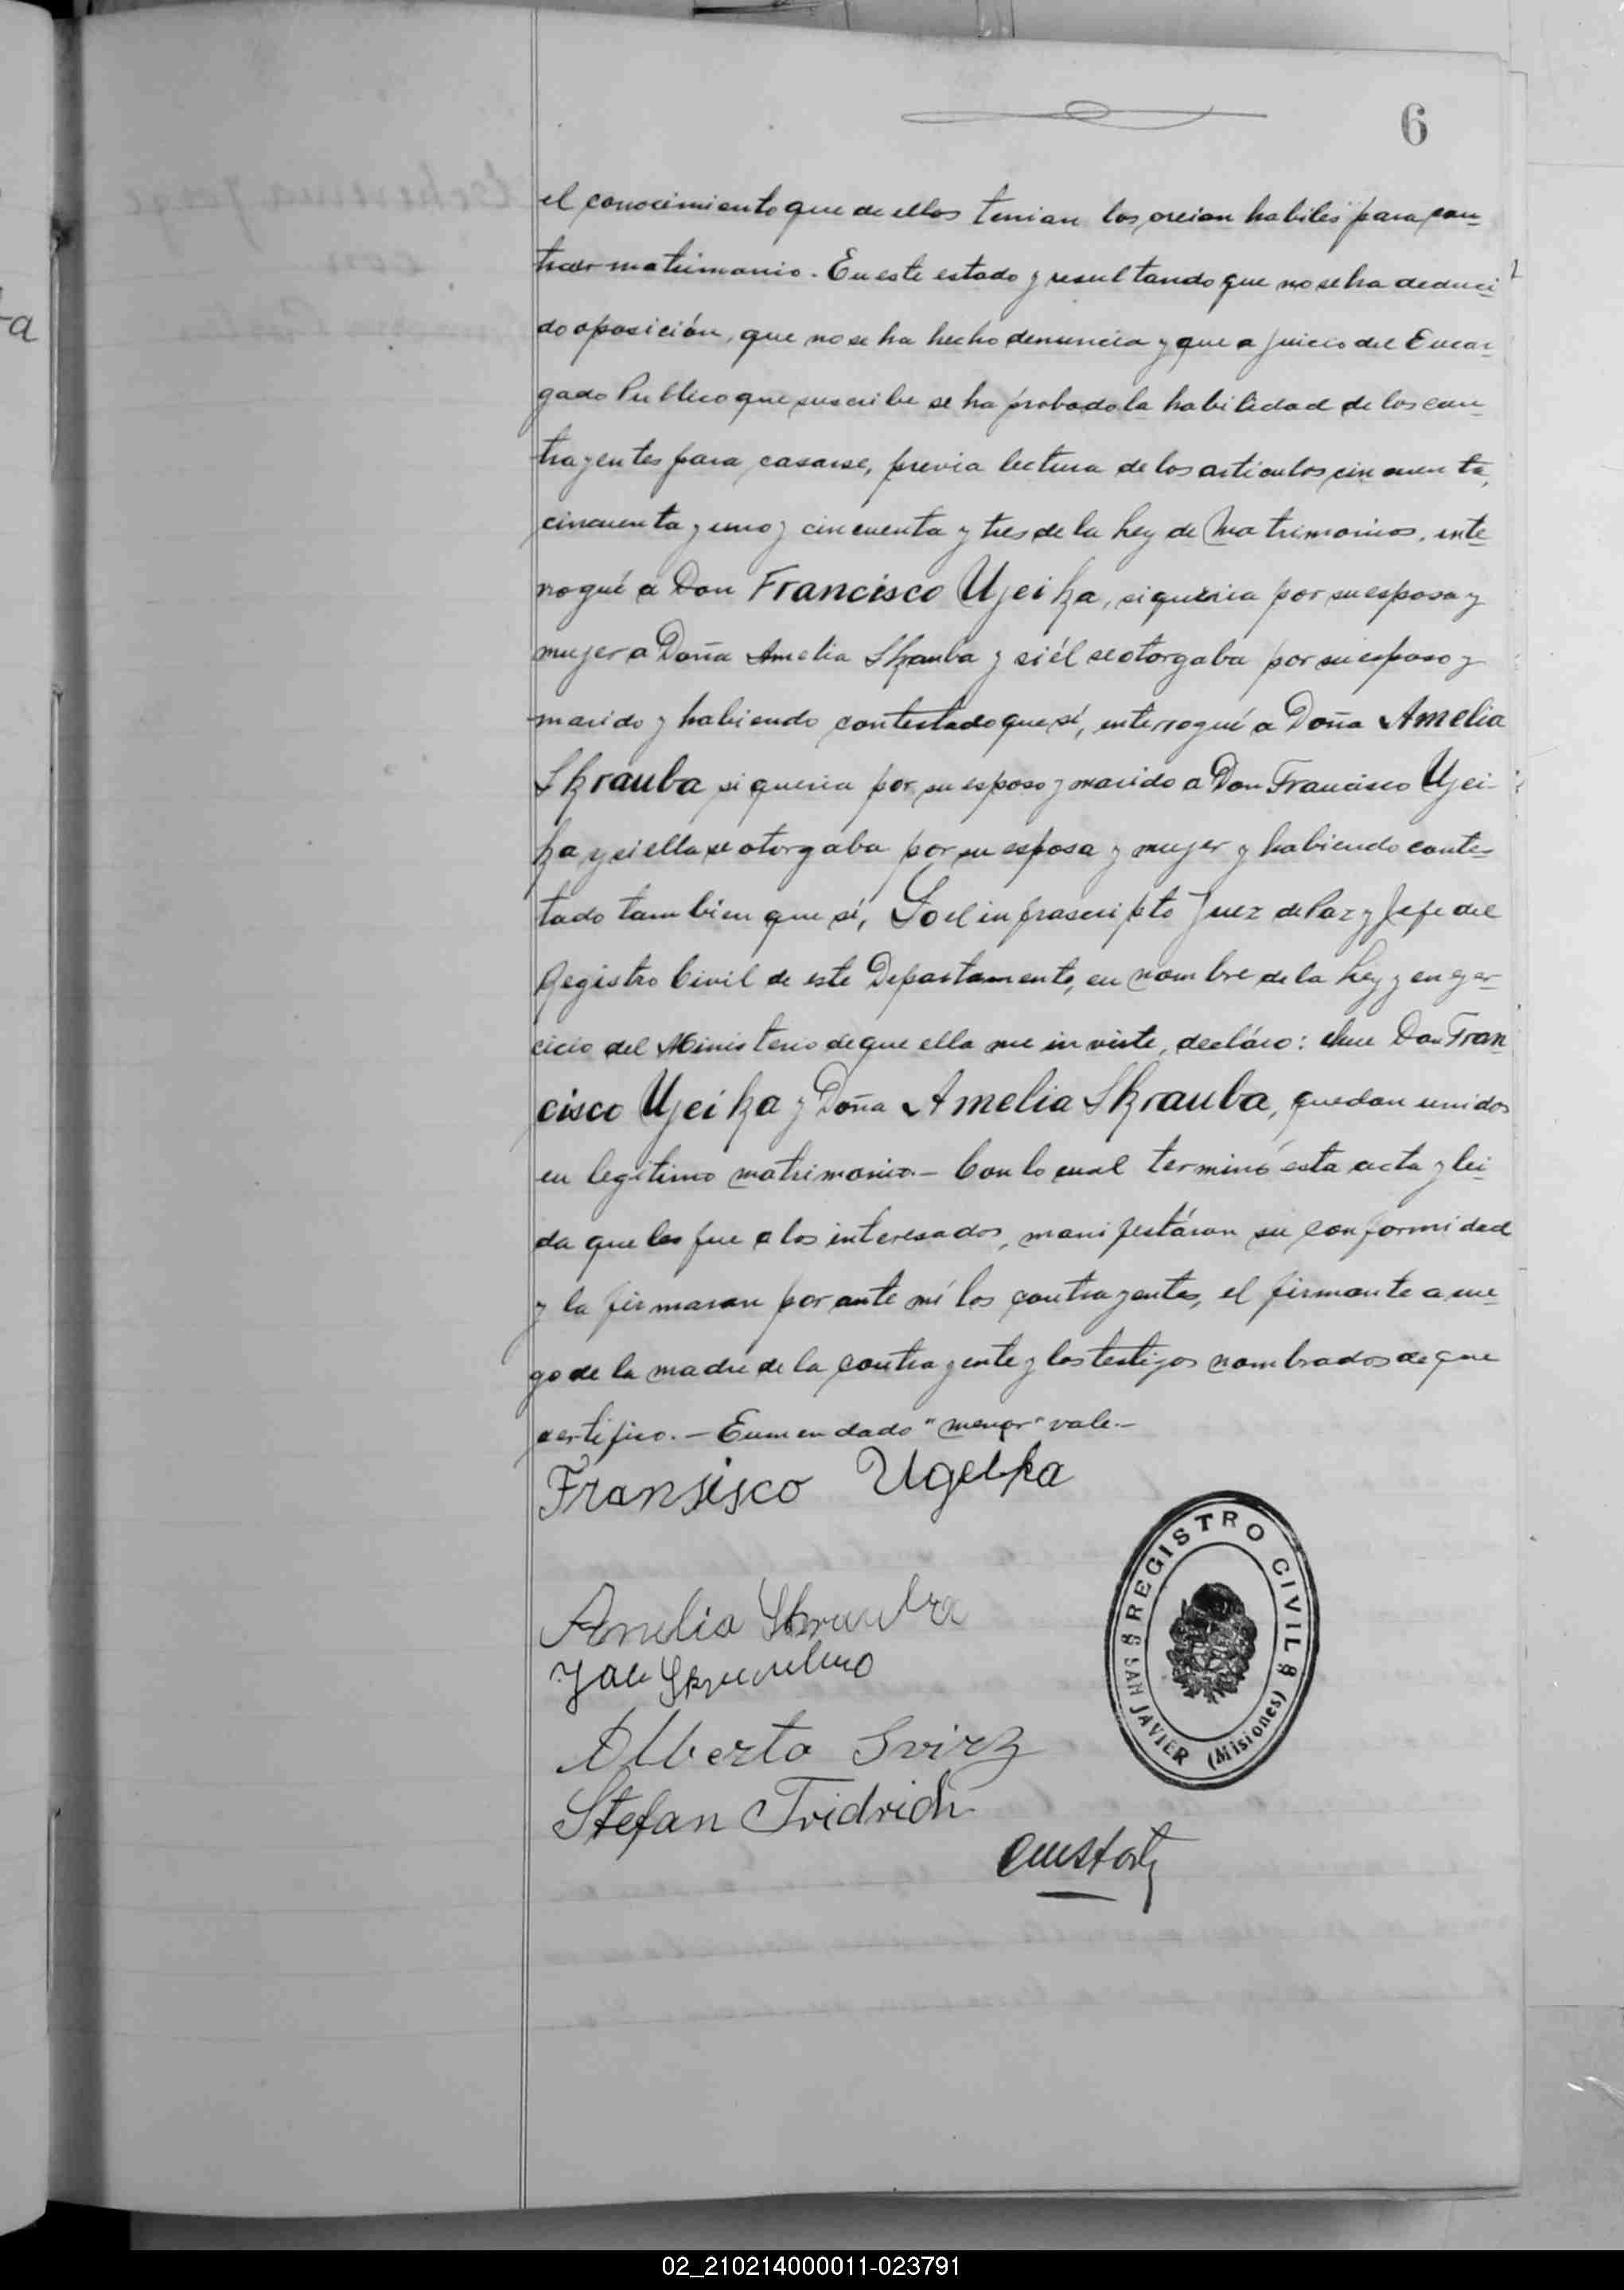 6
el conocimiento que de ellos tenian los creian habiles para con-
traer matrimonio. En este estado y resultando que no se ha deduci-
do oposición, que no se ha hecho denuncia y que a juicio del Encar-
gado Publico que suscribe se ha probado la habilidad de los con-
trayentes para casarse, previa lectura de los articulos cincuenta,
cincuenta y uno y cincuenta y tres de la Ley de Matrimonios, inte-
rrogué a Don Francisco Ujeika, si queria por su esposa y
mujer a Doña Amelia Skrauba y si él se otorgaba por su esposo y
marido y habiendo contestado que sí, interrogué a Doña Amelia
Skrauba si queria por su esposo y marido a Don Francisco Ujei-
ka y si ella se otorgaba por su esposa y mujer y habiendo contes-
tado tambien que sí, Yo el infrascripto Juez de Paz y Jefe del
Registro Civil de este Departamento, en nombre de la Ley y en ejer-
cicio del Ministerio de que ella me inviste, decláro: Que Don Fran
cisco Ujeika y Doña Amelia Skrauba, quedan unidos
en legitimo matrimonio.- Con lo cual terminó esta acta y lei-
da que les fue a los interesados, manifestáron su conformidad
y la firmaron por ante mí los contrayentes, el firmante a rue-
go de la madre de la contrayente y los testigos nombrados de que
certifico.- Enmendado "menor" vale.-
Fransisco Ugeika
Amelia Skrauba
Alberto Svirz
Stefan Fridrich
REGISTRO CIVIL
SAN JAVIER (Misiones)
02_210214000011-023791